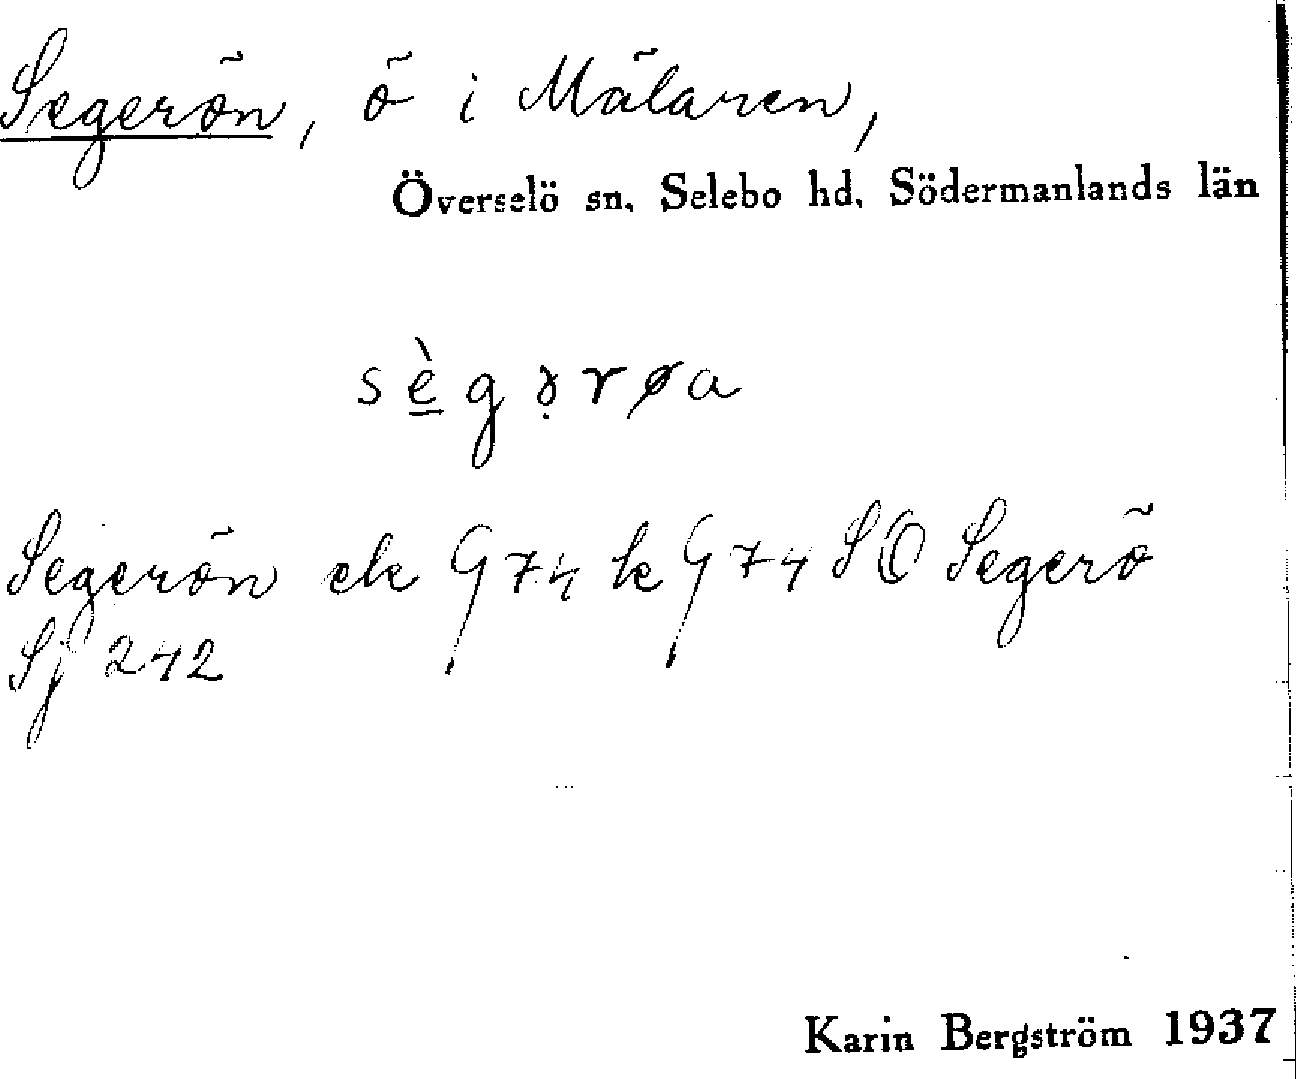 Segerön, ö i Mälaren,
Överselö sn. Selebo hd. Södermanlands län
sègərøa
Segerön ek G74 k G74 SO Segerö
Sj 242
Karin Bergström 1937